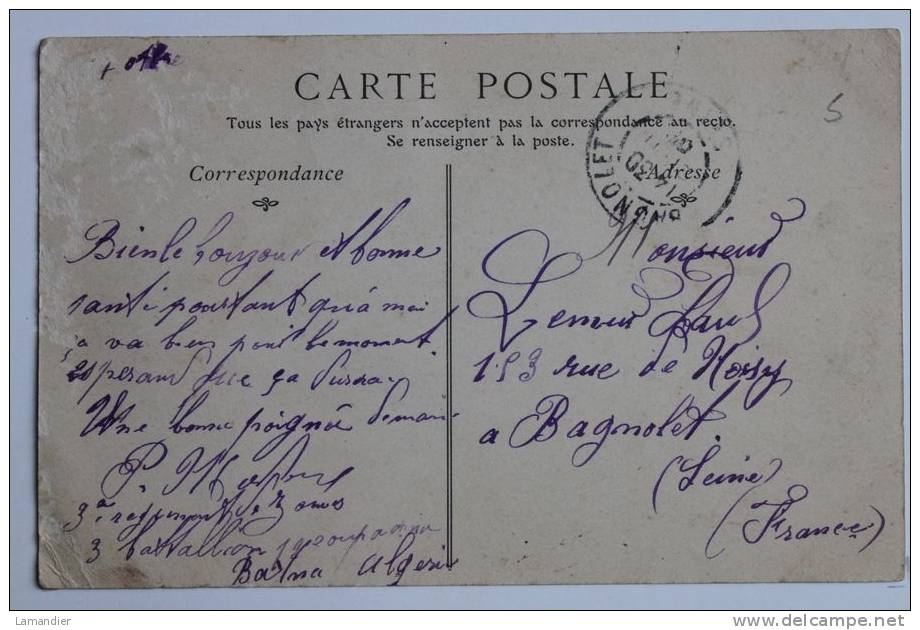 CARTE POSTALE
Tous les pays étrangers n'acceptent pas la correspondance au recto.
Se renseigner à la poste.
Correspondance
Adresse
BAGNOLET
Bien le bonjour et bonne
santi pourtant qu'à moi
sa va bien pour le moment
esperant que ça durra
Une bonne poignée de main
P.
3e regiment de Zouaves
3 batallion compagnie
Batna Algerie
Monsieur
Lemeur Paul
153 rue de Noisy
a Bagnolet
(Seine)
(France)
5
Lamandier
http://www.delcampe.net